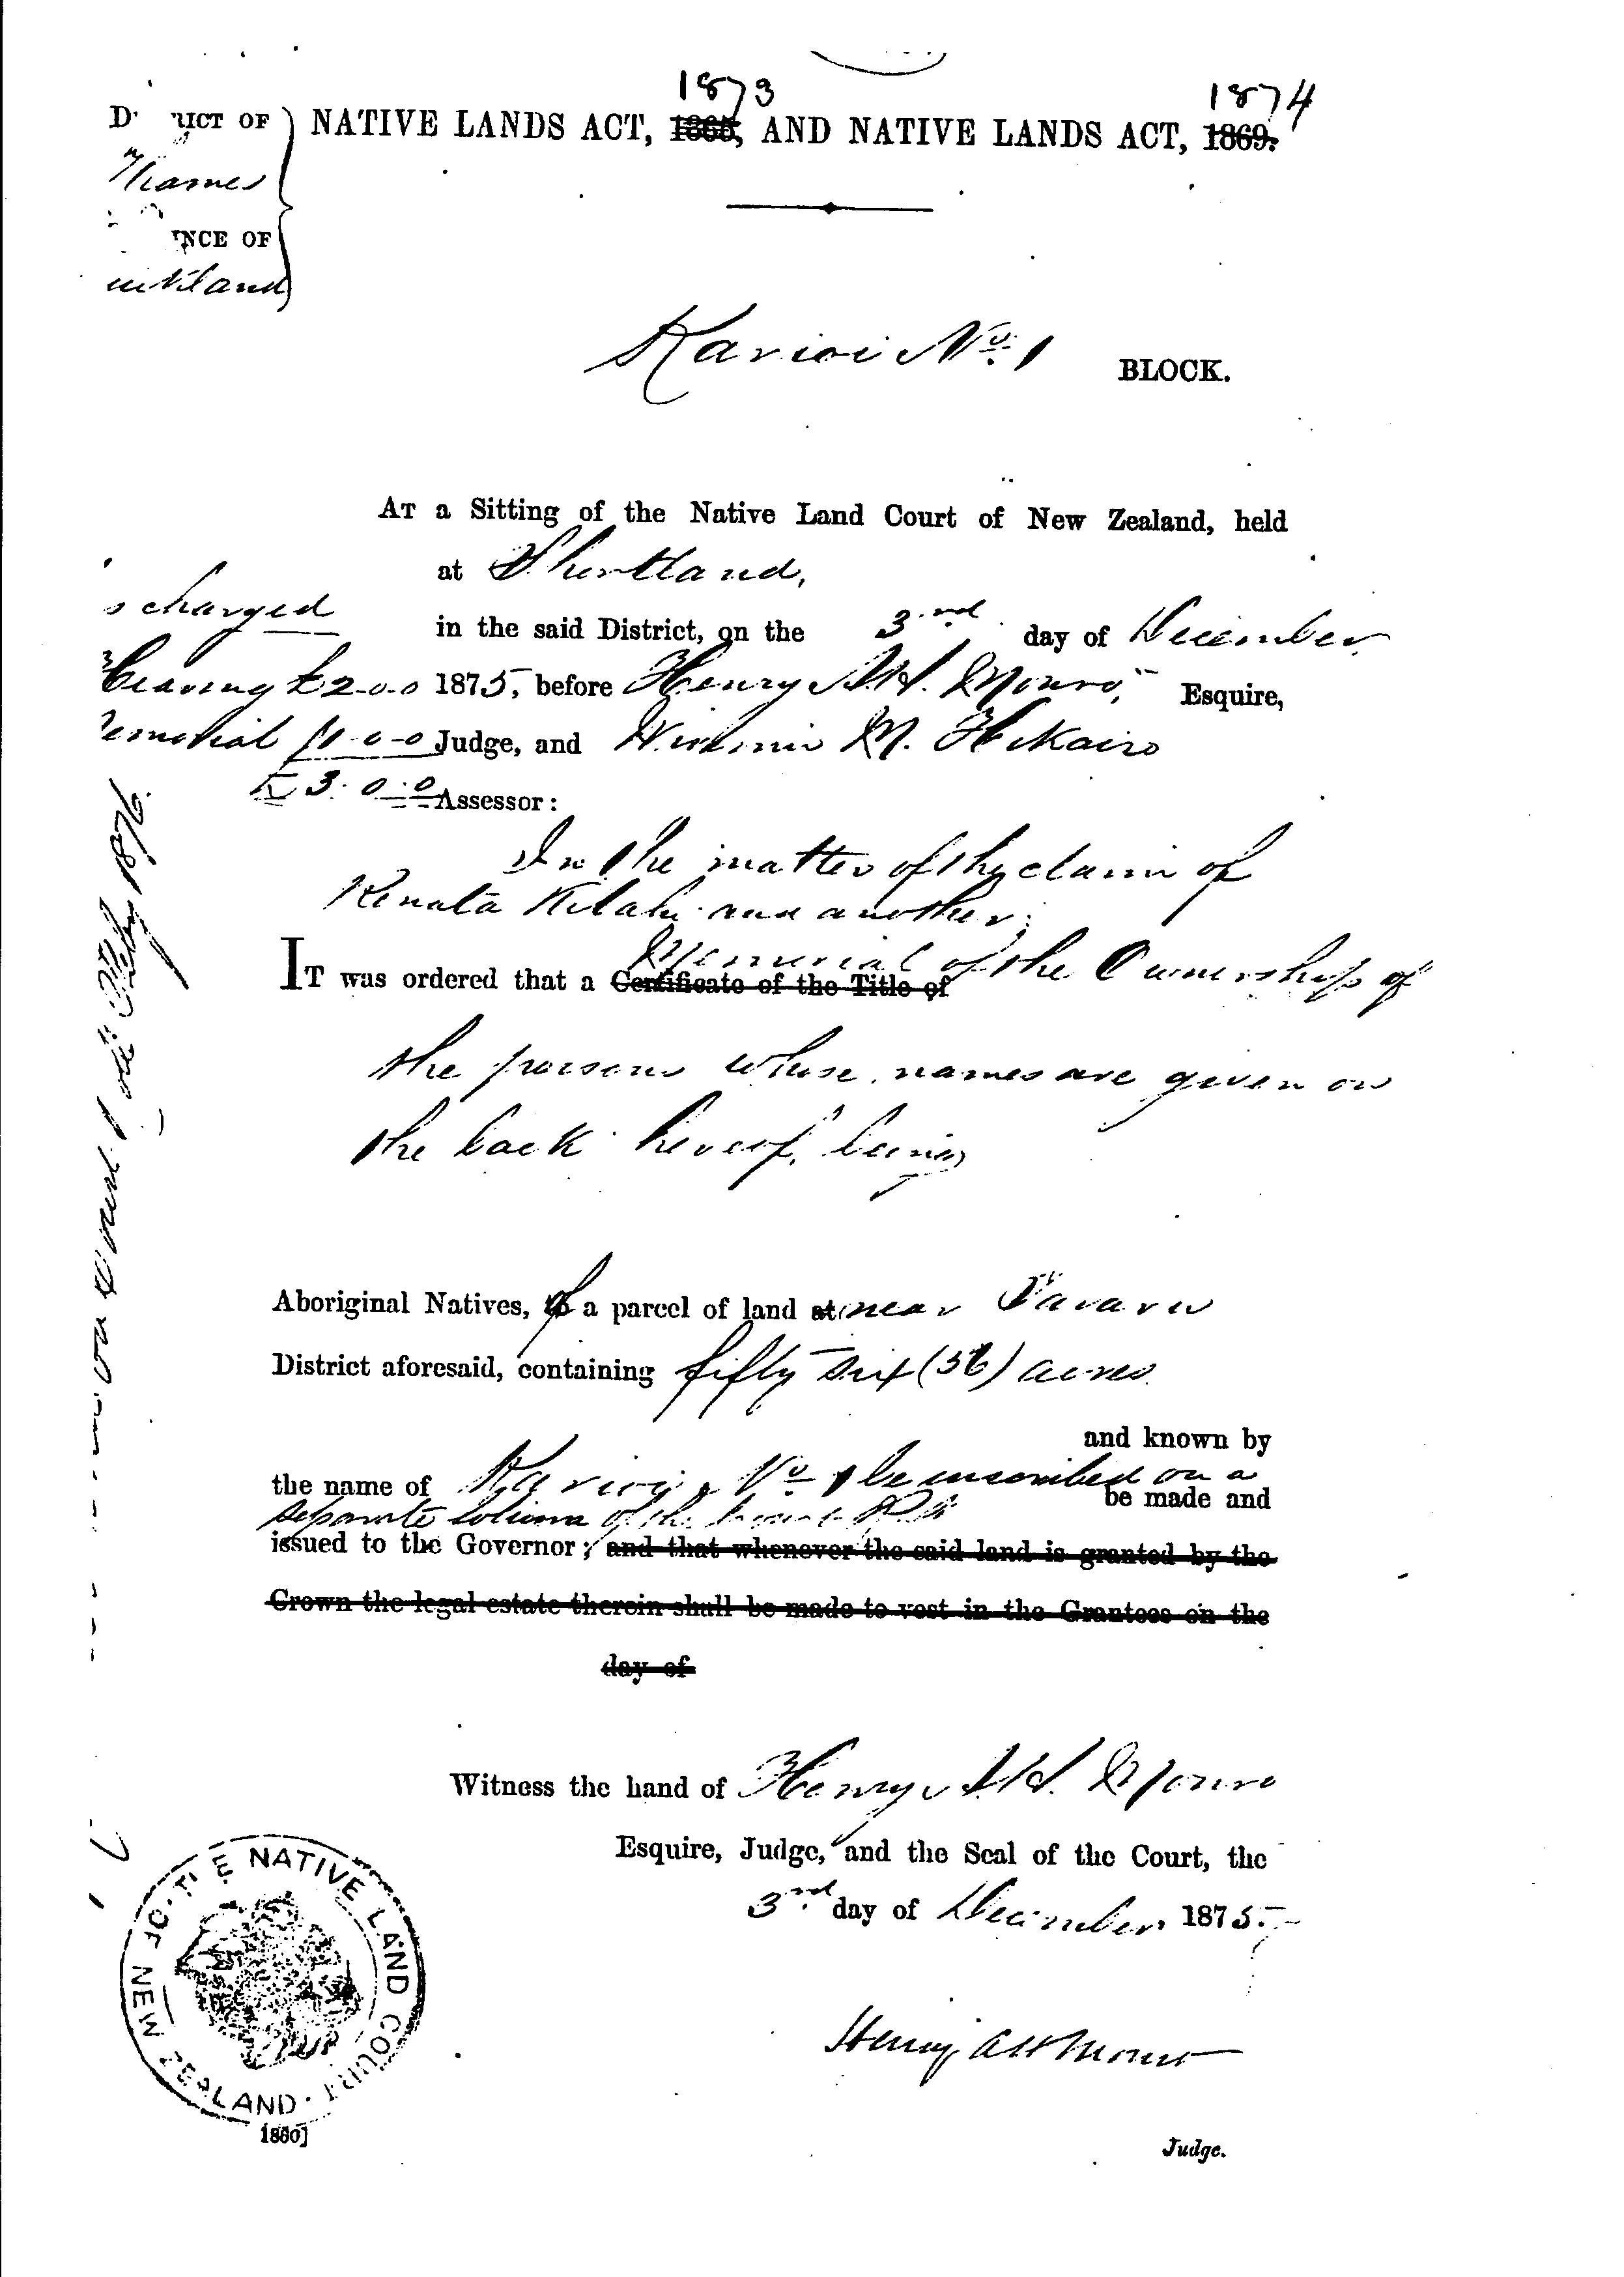 1873 1874
RICT OF
NATIVE LANDS ACT, 1865, AND NATIVE LANDS ACT, 1869.
Thames
NCE OF
uckland
Karioi No. 1 BLOCK.
AT a Sitting of the Native Land Court of New Zealand, held
at Shortland,
s charged
in the said District, on the 3rd day of December
hearing £2-0-0
1875, before Henry A.H. Monro, Esquire,
emorial 1-0-0
Judge, and M. Hikairo
£3.0.0
Assessor:
In the matter of the claim of
Renata and another.
Memorial of the Ownership of
IT was ordered that a Certificate of the Title of
the persons whose names are given on
the back hereof, being
Aboriginal Natives, of a parcel of land at near Tararu
District aforesaid, containing fifty six (56) acres
and known by
the name of Karioi No 1 be inscribed on a
be made and
separate of the Court Rolls
issued to the Governor; and that whenever the said land is granted by the
Crown the legal estate therein shall be made to vest in the Grantees on the
day of
Witness the hand of Henry A.H. Monro
Esquire, Judge, and the Seal of the Court, the
3rd day of December, 1875.
Henry A H Monro
Judge.
on 1 Feby 1876
THE NATIVE LAND COURT OF NEW ZEALAND